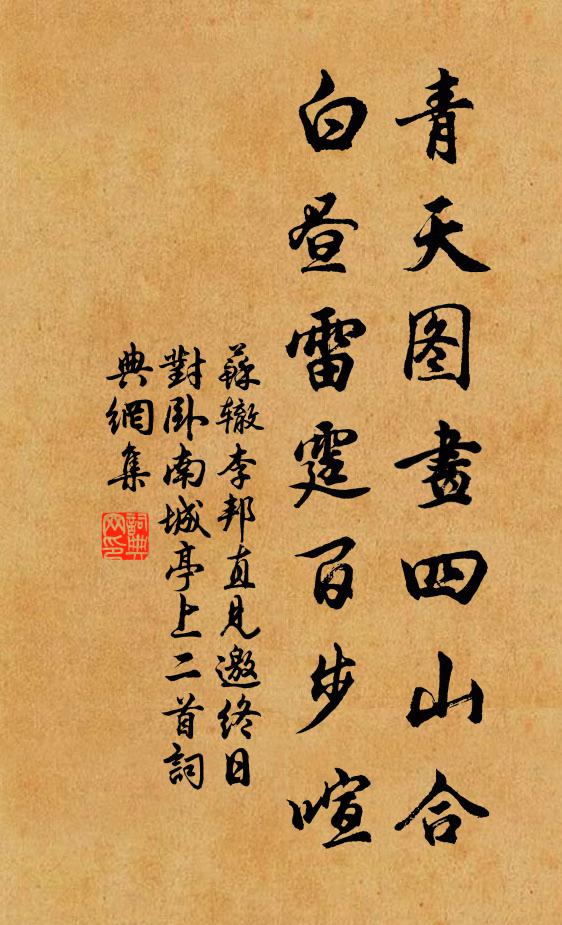 青天图畫四山合
白昼雷霆百步喧
蘇辙李邦直見邀終日
對卧南城亭上二首詞
典網集
詞典
网印